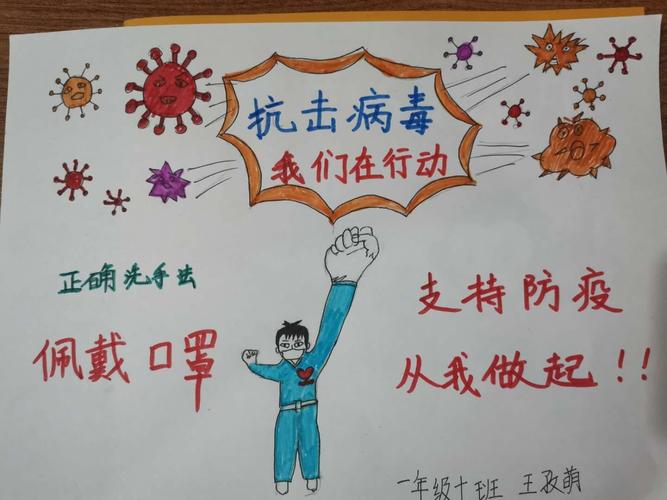 抗击病毒
我们在行动
正确洗手法
佩戴口罩
支持防疫
从我做起!!
一年级十班 王孜萌